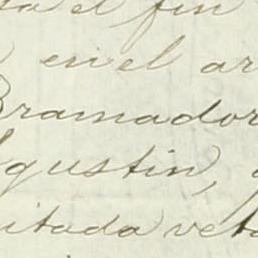 el fin
en el ar
Bramador
Agustin,
itada veta